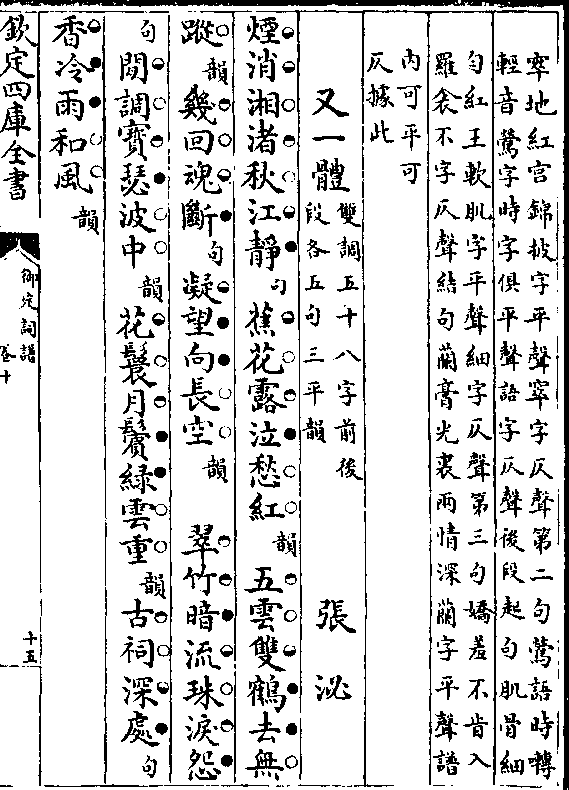 窣地紅宮錦披字平聲窣字仄聲第二句鶯語時囀
輕音鶯字時字俱平聲語字仄聲後段起句肌骨細
勻紅王軟肌字平聲細字仄聲第三句嬌羞不肯入
羅衾不字仄聲結句蘭膏光裏兩情深蘭字平聲譜
内可平可
仄據此
又一體 雙調五十八字前後
段各五句三平韻 張泌
煙消湘渚秋江靜句蕉花露泣愁紅韻五雲雙鶴去無
蹤韻幾回魂斷句凝望向長空韻 翠竹暗流珠淚怨
句閒調寳瑟波中韻花鬟月鬢綠雲重韻古祠深處句
香冷雨和風韻
欽定四庫全書
御定詞譜
卷十
十五